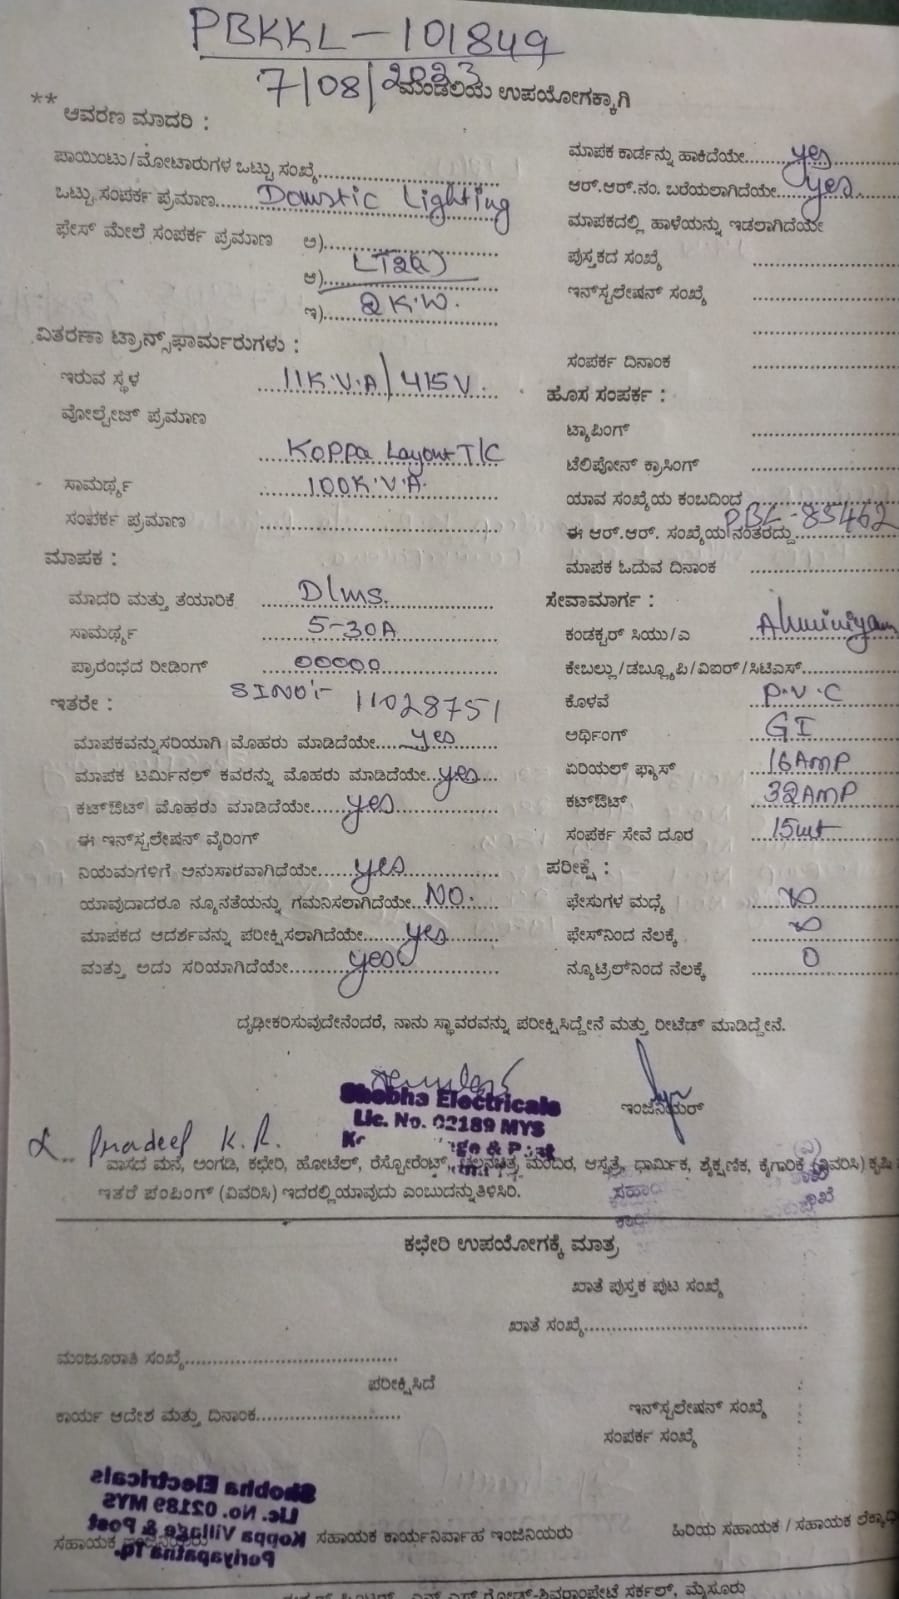 PBKKL - 101849
7/08/2023
ಮಂಡಲಿಯ ಉಪಯೋಗಕ್ಕಾಗಿ
** ಆವರಣ ಮಾದರಿ :
ಪಾಯಿಂಟು/ಮೋಟಾರುಗಳ ಒಟ್ಟು ಸಂಖ್ಯೆ
ಒಟ್ಟು ಸಂಪರ್ಕ ಪ್ರಮಾಣ Domstic Lighting
ಫೇಸ್ ಮೇಲೆ ಸಂಪರ್ಕ ಪ್ರಮಾಣ ಅ)
ಆ)
ಇ) 2K.W.
ವಿತರಣಾ ಟ್ರಾನ್ಸ್‌ಫಾರ್ಮರುಗಳು :
ಇರುವ ಸ್ಥಳ 11K.V.A/415V.
ವೋಲ್ಟೇಜ್ ಪ್ರಮಾಣ
Koppa Layout T/C
ಸಾಮರ್ಥ್ಯ 100K.V.A.
ಸಂಪರ್ಕ ಪ್ರಮಾಣ
ಮಾಪಕ :
ಮಾದರಿ ಮತ್ತು ತಯಾರಿಕೆ Dlms.
ಸಾಮರ್ಥ್ಯ 5-30A
ಪ್ರಾರಂಭದ ರೀಡಿಂಗ್ 00000
ಇತರೇ : SINO:- 11028751
ಮಾಪಕವನ್ನುಸರಿಯಾಗಿ ಮೊಹರು ಮಾಡಿದೆಯೇ yes
ಮಾಪಕ ಟರ್ಮಿನಲ್ ಕವರನ್ನು ಮೊಹರು ಮಾಡಿದೆಯೇ yes
ಕಟ್‌ಔಟ್ ಮೊಹರು ಮಾಡಿದೆಯೇ yes
ಈ ಇನ್‌ಸ್ಟಲೇಷನ್ ವೈರಿಂಗ್
ನಿಯಮಗಳಿಗೆ ಅನುಸಾರವಾಗಿದೆಯೇ yes
ಯಾವುದಾದರೂ ನ್ಯೂನತೆಯನ್ನು ಗಮನಿಸಲಾಗಿದೆಯೇ NO.
ಮಾಪಕದ ಆದರ್ಶವನ್ನು ಪರೀಕ್ಷಿಸಲಾಗಿದೆಯೇ yes
ಮತ್ತು ಅದು ಸರಿಯಾಗಿದೆಯೇ yes
ಮಾಪಕ ಕಾರ್ಡನ್ನು ಹಾಕಿದೆಯೇ yes
ಆರ್.ಆರ್.ನಂ. ಬರೆಯಲಾಗಿದೆಯೇ yes.
ಮಾಪಕದಲ್ಲಿ ಹಾಳೆಯನ್ನು ಇಡಲಾಗಿದೆಯೇ
ಪುಸ್ತಕದ ಸಂಖ್ಯೆ
ಇನ್‌ಸ್ಟಲೇಷನ್ ಸಂಖ್ಯೆ
ಸಂಪರ್ಕ ದಿನಾಂಕ
ಹೊಸ ಸಂಪರ್ಕ :
ಟ್ಯಾಪಿಂಗ್
ಟೆಲಿಫೋನ್ ಕ್ರಾಸಿಂಗ್
ಯಾವ ಸಂಖ್ಯೆಯ ಕಂಬದಿಂದ
ಈ ಆರ್.ಆರ್. ಸಂಖ್ಯೆಯ ನಂತರದ್ದು PBL-85462
ಮಾಪಕ ಓದುವ ದಿನಾಂಕ
ಸೇವಾಮಾರ್ಗ :
ಕಂಡಕ್ಟರ್ ಸಿಯು/ಎ Aluminiyam
ಕೇಬಲ್ಲು/ಡಬ್ಲ್ಯೂಪಿ/ವಿಐಆರ್/ಸಿಟಿಎಸ್
ಕೊಳವೆ P.V.C
ಅರ್ಥಿಂಗ್ GI
ಏರಿಯಲ್ ಫ್ಯೂಸ್ 16AMP
ಕಟ್‌ಔಟ್ 32AMP
ಸಂಪರ್ಕ ಸೇವೆ ದೂರ 15mt
ಪರೀಕ್ಷೆ :
ಫೇಸುಗಳ ಮಧ್ಯೆ ∞
ಫೇಸ್‌ನಿಂದ ನೆಲಕ್ಕೆ ∞
ನ್ಯೂಟ್ರಲ್‌ನಿಂದ ನೆಲಕ್ಕೆ 0
ದೃಢೀಕರಿಸುವುದೇನೆಂದರೆ, ನಾನು ಸ್ಥಾವರವನ್ನು ಪರೀಕ್ಷಿಸಿದ್ದೇನೆ ಮತ್ತು ರೀಟೆಡ್ ಮಾಡಿದ್ದೇನೆ.
Shobha Electricals
Lic. No. 02189 MYS
ಇಂಜಿನಿಯರ್
Pradeep K.R.
ವಾಸದ ಮನೆ, ಅಂಗಡಿ, ಕಛೇರಿ, ಹೋಟೆಲ್, ರೆಸ್ಟೋರೆಂಟ್, ಚಲನಚಿತ್ರ ಮಂದಿರ, ಆಸ್ಪತ್ರೆ, ಧಾರ್ಮಿಕ, ಶೈಕ್ಷಣಿಕ, ಕೈಗಾರಿಕೆ (ವಿವರಿಸಿ) ಕೃಷಿ
ಇತರೆ ಪಂಪಿಂಗ್ (ವಿವರಿಸಿ) ಇದರಲ್ಲಿಯಾವುದು ಎಂಬುದನ್ನುತಿಳಿಸಿರಿ.
ಕಛೇರಿ ಉಪಯೋಗಕ್ಕೆ ಮಾತ್ರ
ಖಾತೆ ಪುಸ್ತಕ ಪುಟ ಸಂಖ್ಯೆ
ಖಾತೆ ಸಂಖ್ಯೆ
ಮಂಜೂರಾತಿ ಸಂಖ್ಯೆ
ಪರೀಕ್ಷಿಸಿದೆ
ಕಾರ್ಯ ಆದೇಶ ಮತ್ತು ದಿನಾಂಕ
ಇನ್‌ಸ್ಟಲೇಷನ್ ಸಂಖ್ಯೆ
ಸಂಪರ್ಕ ಸಂಖ್ಯೆ
Shobha Electricals
Lic. No. 02189 MYS
Koppa Village & Post
Periyapatna Tq.
ಸಹಾಯಕ ಇಂಜಿನಿಯರು ಸಹಾಯಕ ಕಾರ್ಯನಿರ್ವಾಹ ಇಂಜಿನಿಯರು ಹಿರಿಯ ಸಹಾಯಕ / ಸಹಾಯಕ